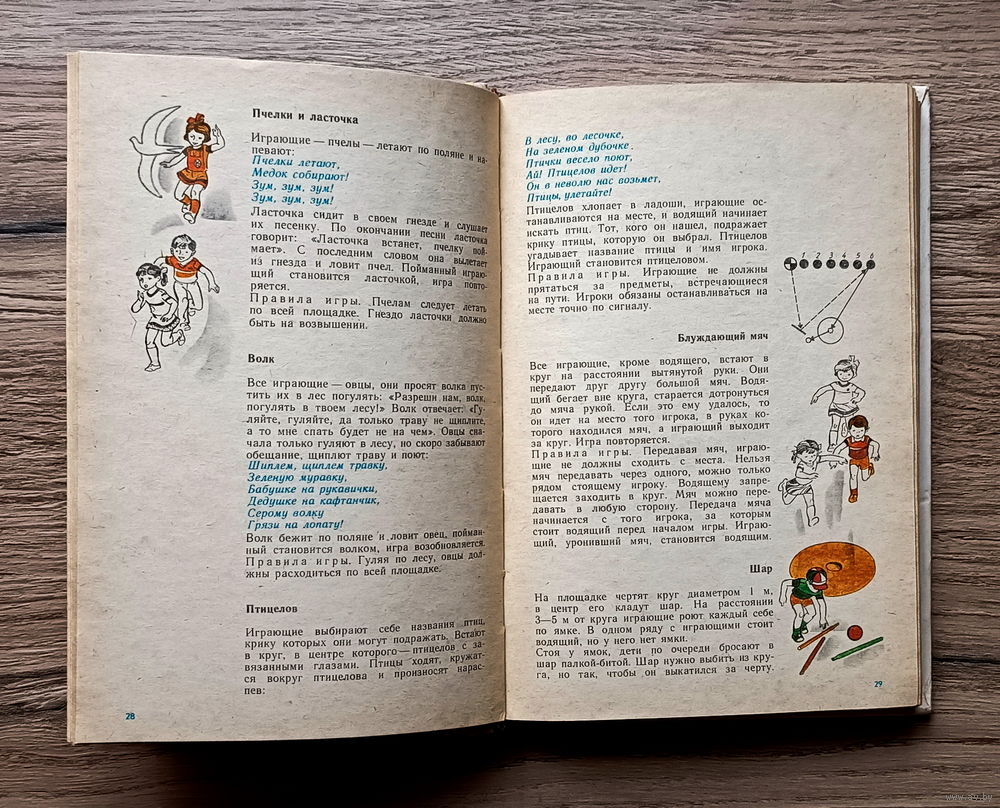 Пчелки и ласточка
Играющие — пчелы — летают по поляне и на-
певают:
Пчелки летают,
Медок собирают!
Зум, зум, зум!
Зум, зум, зум!
Ласточка сидит в своем гнезде и слушает
их песенку. По окончании песни ласточка
говорит: «Ласточка встанет, пчелку пой-
мает». С последним словом она вылетает
из гнезда и ловит пчел. Пойманный играю-
щий становится ласточкой, игра повто-
ряется.
Правила игры. Пчелам следует летать
по всей площадке. Гнездо ласточки должно
быть на возвышении.
Волк
Все играющие — овцы, они просят волка пус-
тить их в лес погулять: «Разреши нам, волк,
погулять в твоем лесу!» Волк отвечает: «Гу-
ляйте, гуляйте, да только траву не щиплите,
а то мне спать будет не на чем». Овцы сна-
чала только гуляют в лесу, но скоро забывают
обещание, щиплют траву и поют:
Щиплем, щиплем травку,
Зеленую муравку,
Бабушке на рукавички,
Дедушке на кафтанчик,
Серому волку
Грязи на лопату!
Волк бежит по поляне и ловит овец, пойман-
ный становится волком, игра возобновляется.
Правила игры. Гуляя по лесу, овцы дол-
жны расходиться по всей площадке.
Птицелов
Играющие выбирают себе названия птиц,
крику которых они могут подражать. Встают
в круг, в центре которого — птицелов с за-
вязанными глазами. Птицы ходят, кружат-
ся вокруг птицелова и произносят нарас-
пев:
28
В лесу, во лесочке,
На зеленом дубочке.
Птички весело поют,
Ай! Птицелов идет!
Он в неволю нас возьмет,
Птицы, улетайте!
Птицелов хлопает в ладоши, играющие ос-
танавливаются на месте, и водящий начинает
искать птиц. Тот, кого он нашел, подражает
крику птицы, которую он выбрал. Птицелов
угадывает название птицы и имя игрока.
Играющий становится птицеловом.
Правила игры. Играющие не должны
прятаться за предметы, встречающиеся
на пути. Игроки обязаны останавливаться на
месте точно по сигналу.
1 2 3 4 5 6
Блуждающий мяч
Все играющие, кроме водящего, встают в
круг на расстоянии вытянутой руки. Они
передают друг другу большой мяч. Водя-
щий бегает вне круга, старается дотронуться
до мяча рукой. Если это ему удалось, то
он идет на место того игрока, в руках ко-
торого находился мяч, а играющий выходит
за круг. Игра повторяется.
Правила игры. Передавая мяч, играю-
щие не должны сходить с места. Нельзя
мяч передавать через одного, можно только
рядом стоящему игроку. Водящему запре-
щается заходить в круг. Мяч можно пере-
давать в любую сторону. Передача мяча
начинается с того игрока, за которым
стоит водящий перед началом игры. Играю-
щий, уронивший мяч, становится водящим.
Шар
На площадке чертят круг диаметром 1 м,
в центр его кладут шар. На расстоянии
3—5 м от круга играющие роют каждый себе
по ямке. В одном ряду с играющими стоит
водящий, но у него нет ямки.
Стоя у ямок, дети по очереди бросают в
шар палкой-битой. Шар нужно выбить из кру-
га, но так, чтобы он выкатился за черту.
29